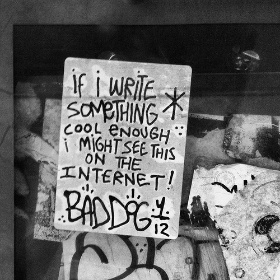 if i WRITE
SOMETHING
COOL ENOUGH
i MiGHT SEE THIS
ON THE
INTERNET!
BAD DOG
12